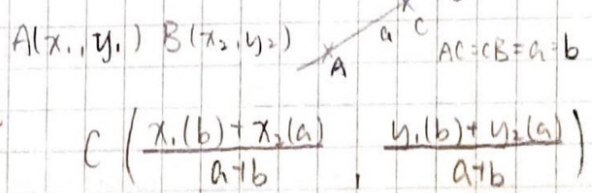 A(x₁, y₁) B(x₂, y₂)
a C
A
AC=CB=a:b
C ( x₁(b)+x₂(a) / a+b , y₁(b)+y₂(a) / a+b )